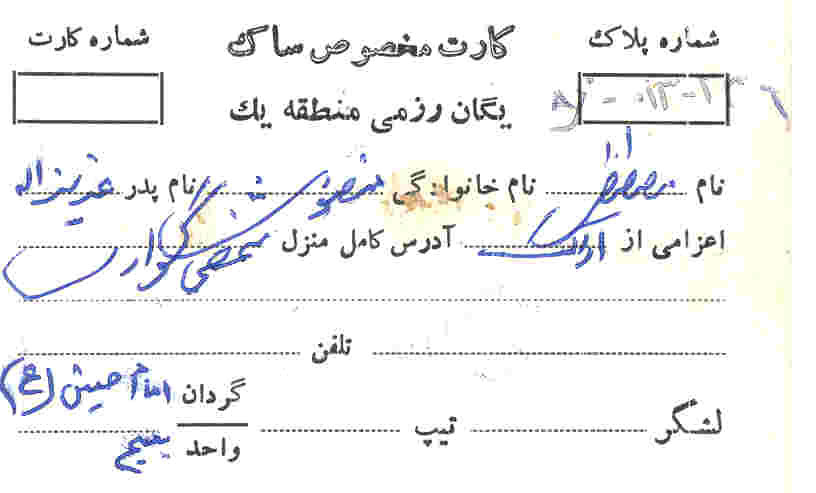 شماره پلاک کارت مخصوص ساک شماره کارت
یگان رزمی منطقه یک
نام مصطفی نام خانوادگی منصوری نام پدر عزیزاله
اعزامی از اراک آدرس کامل منزل
تلفن
لشگر تیپ گردان امام حسین (ع)
واحد بسیج